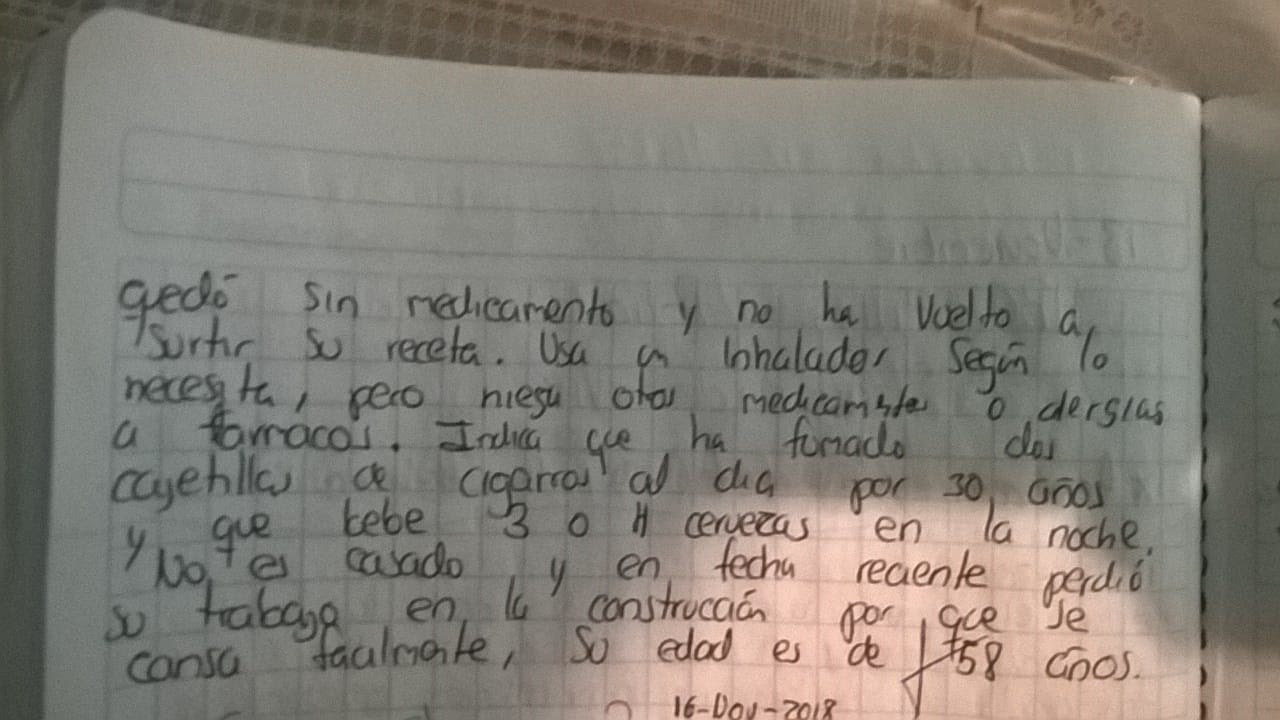 quedó sin medicamento y no ha vuelto a
surtir su receta. Usa un inhalador según lo
necesita, niega otros medicamentos o alergias
a farmacos. Indica que ha fumado dos
cajetillas de cigarros al dia por 30 años
y que bebe 3 o 4 cervezas en la noche.
No es casado y en fecha reciente perdió
su trabajo en la construcción por que se
cansa facilmente, su edad es de 58 años.
16-Nov-2018